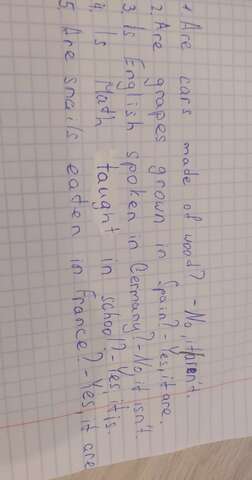 1. Are cars made of wood? - No, it aren't
2. Are grapes grown in Spain? - Yes, it are.
3. Is English spoken in Germany? - No, it isn't.
4. Is Math taught in school? - Yes, it is.
5. Are snails eaten in France? - Yes, it are